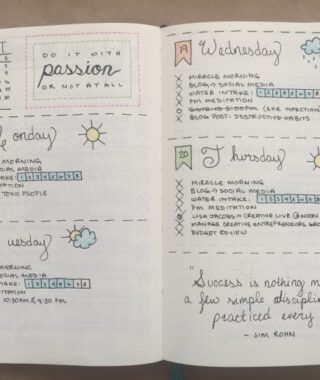 DO IT WITH
passion
OR NOT AT ALL
onday
MORNING
OCIAL MEDIA
TAKE: 1 2 3 4 5 6 7 8
TATION
TOXIC PEOPLE
uesday
MORNING
OCIAL MEDIA
TAKE: 1 2 3 4 5 6 7 8
ITATION
10:30AM & 4:30 PM
19 Wednesday
MIRACLE MORNING
BLOG → SOCIAL MEDIA
WATER INTAKE: 1 2 3 4 5 6 7 8
PM MEDITATION
(EAR INFECTION
BLOG POST: DESTRUCTIVE HABITS
20 Thursday
MIRACLE MORNING
BLOG → SOCIAL MEDIA
WATER INTAKE: 1 2 3 4 5 6 7 8
PM MEDITATION
LISA JACOBS → CREATIVE LIVE @ NOON
MANAGE CREATIVE ENTREPRENEURS GRO
BUDGET REVIEW
"Success is nothing m
a few simple disciplin
practiced every
- JIM ROHN